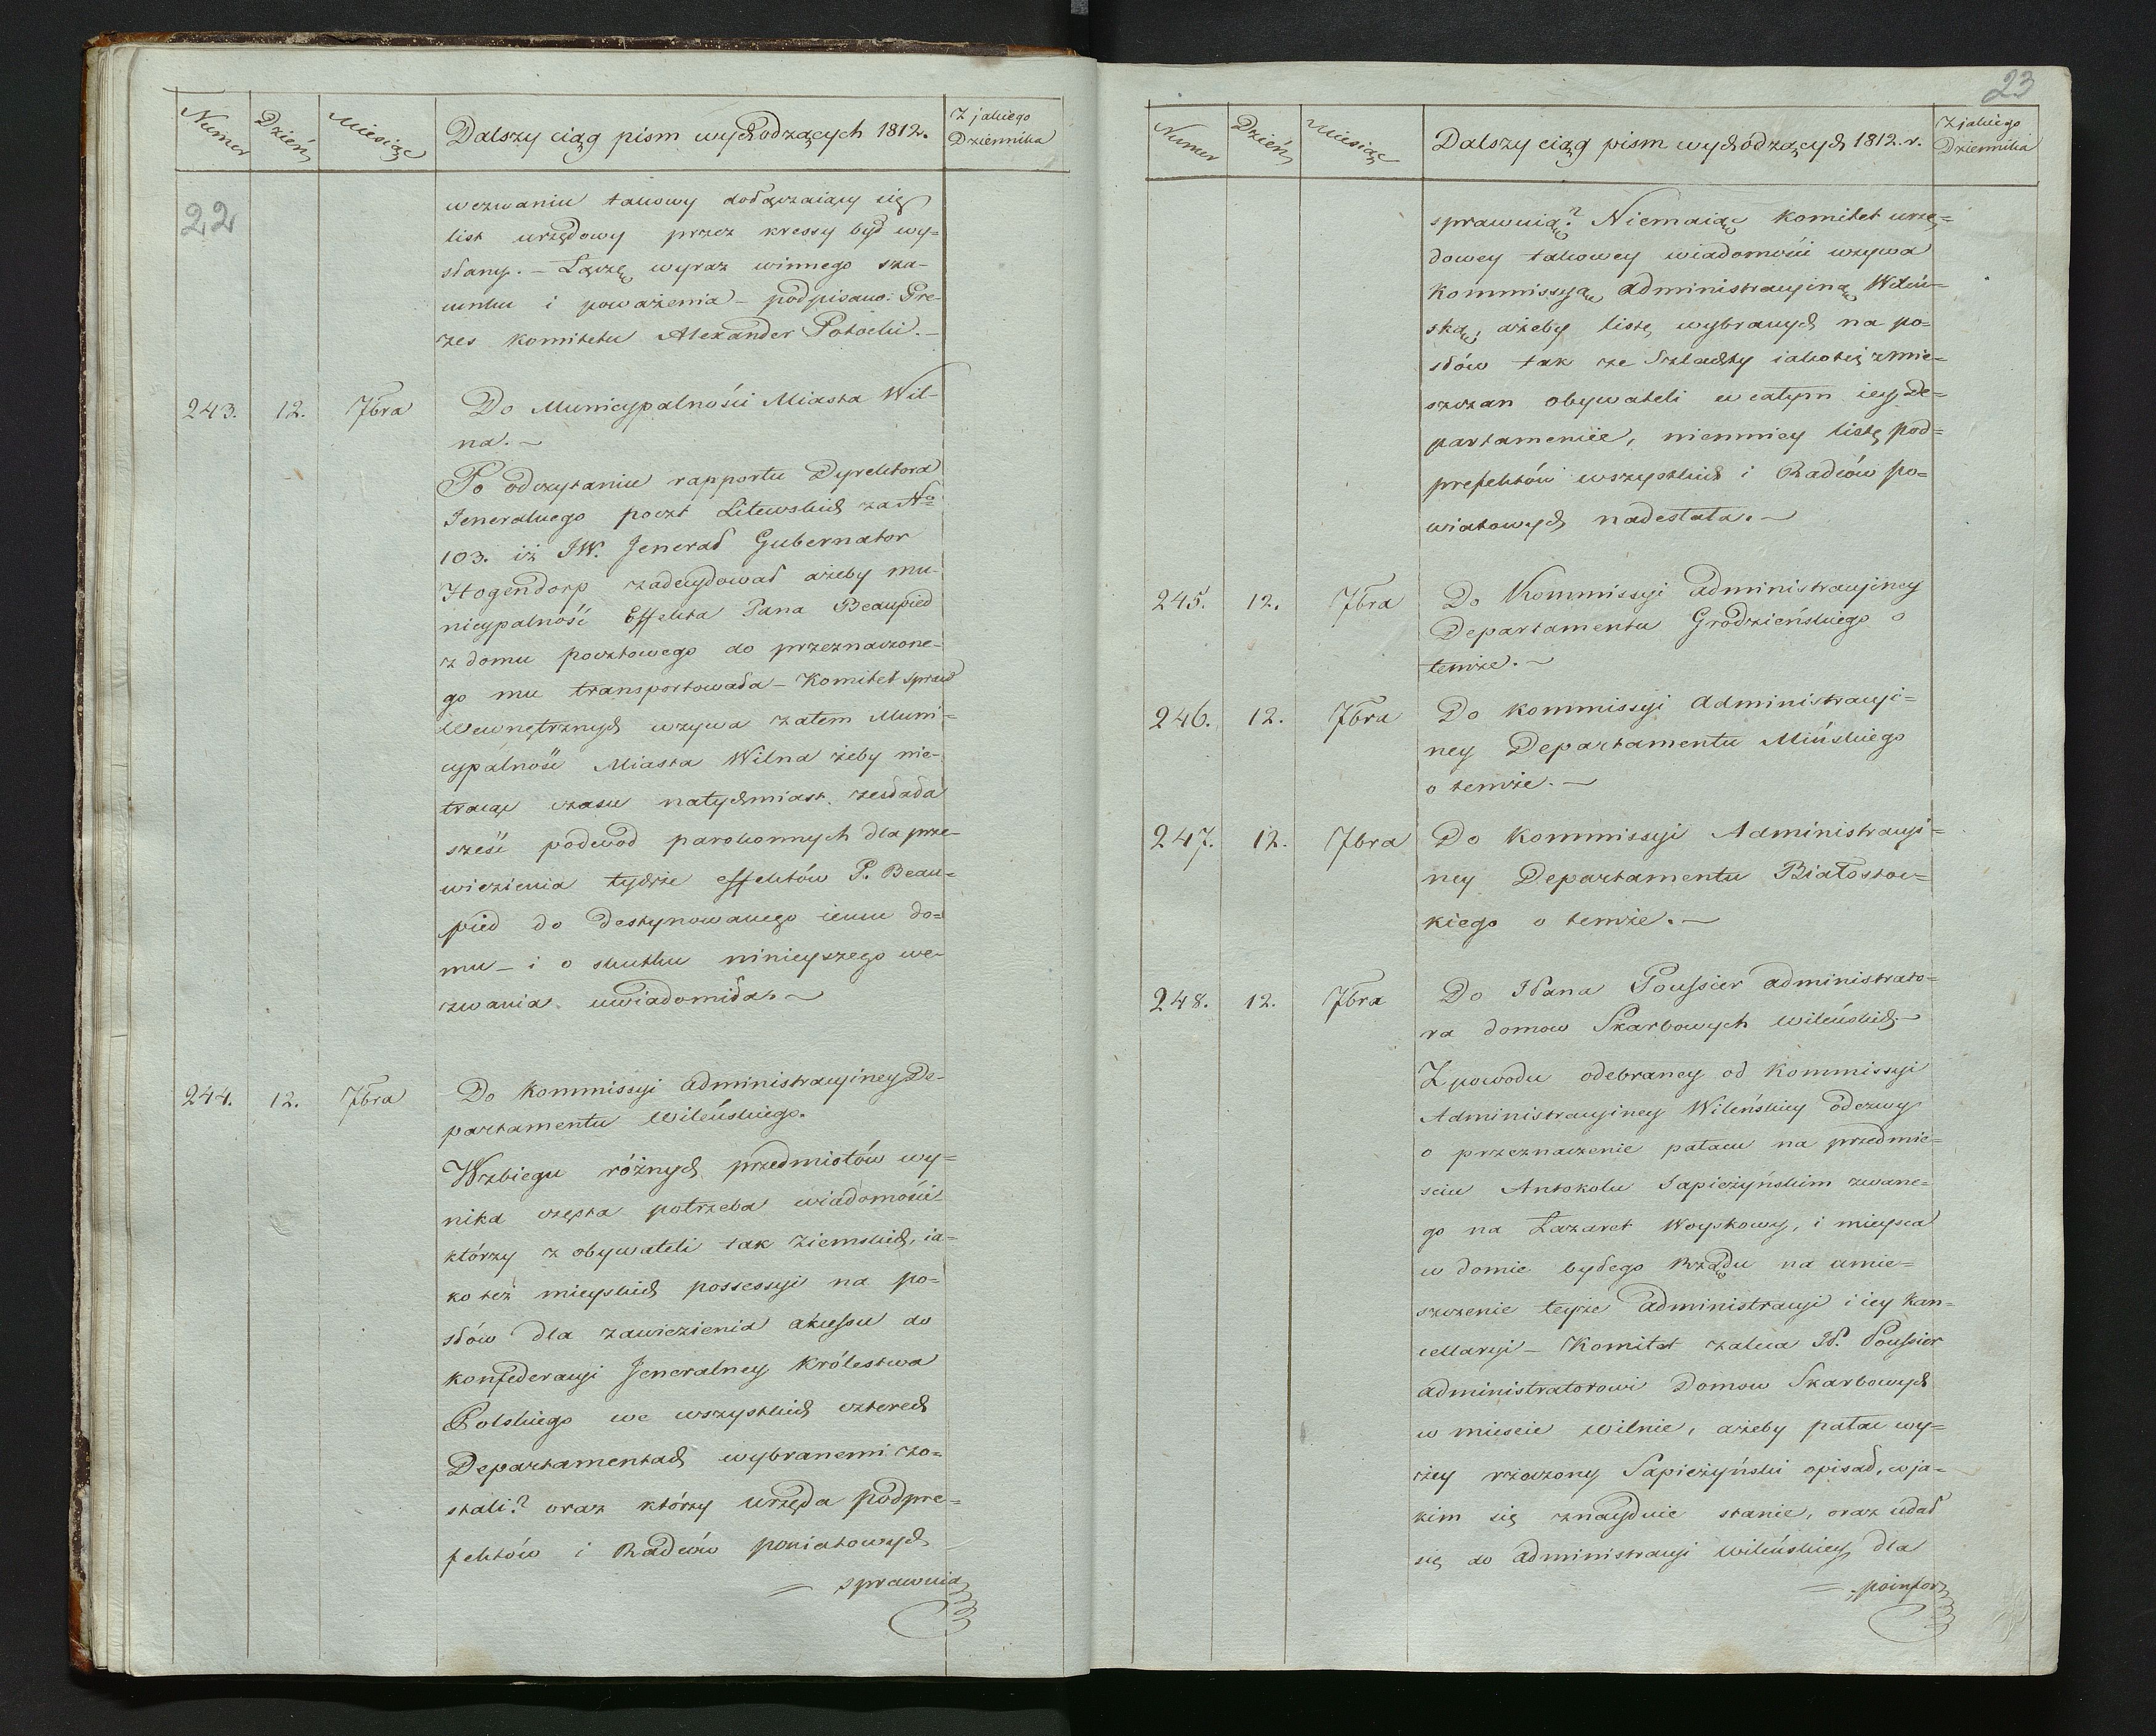 Numer Dzień Miesiąc Dalszy ciąg pism wychodzących 1812. Z jakiego Dziennika
22
wezwaniu takowy dołączaiący się
list urzędowy przez kressy był wy-
słany. – Łączę wyraz winnego sza-
cunku i poważenia – podpisano: Pre-
zes komitetu Alexander Potocki. –
243. 12. 7bra Do Municypalności Miasta Wil-
na. –
Po odczytaniu rapportu Dyrektora
Jeneralnego poczt Litewskich za No
103. iż JW. Jenerał Gubernator
Hogendorp zadecydował ażeby mu-
nicypalność Effekta Pana Beaupied
z domu pocztowego do przeznaczone-
go mu transportowała – Komitet spraw
Wewnętrznych wzywa zatem Muni-
cypalność Miasta Wilna żeby nie-
tracąc czasu natychmiast zesłała
sześć podwod parokonnych dla prze-
wiezienia tychże effektów P. Beau-
pied do destynowanego iemu do-
mu – i o skutku ninieyszego we-
zwania uwiadomiła. –
244. 12. 7bra Do Kommissyi Administracyiney De-
partamentu Wileńskiego.
W zbiegu różnych przedmiotów wy-
nika częsta potrzeba wiadomości
którzy z obywateli tak ziemskich, ia-
ko też mieyskich possessyi na po-
słów dla zawiezienia akcessu do
konfederacyi Jeneralney Królestwa
Polskiego we wszystkich czterech
Departamentach wybranemi zo-
stali? oraz którzy urzęda podpre-
fektów i Radców powiatowych
– sprawuią
23
Numer Dzień Miesiąc Dalszy ciąg pism wychodzących 1812. r. Z jakiego Dziennika
sprawuią? Niemaiąc komitet urzę-
dowey takowey wiadomości wzywa
Kommissyą Administracyiną Wileń-
ską, ażeby listę wybranych na po-
słów tak ze Szlachty iakoteż z mie-
szczan obywateli w całym iey De-
partamencie, niemniey listę pod-
prefektów wszystkich i Radców po-
wiatowych nadesłała. –
245. 12. 7bra Do Kommissyi Administracyiney
Departamentu Grodzieńskiego o
temże. –
246. 12. 7bra Do kommissyi Administracyi-
ney Departamentu Mińskiego
o temże. –
247. 12. 7bra Do kommissyi Administracyi-
ney Departamentu Białostoc-
kiego o temże. –
248. 12. 7bra Do JPana Poussier administrato-
ra domow Skarbowych wileńskich –
Z powodu odebraney od kommissyi
Administracyiney Wileńskiey odezwy
o przeznaczenie pałacu na przedmie-
sciu Antokolu Sapieżyńskim zwane-
go na Lazaret Woyskowy, i mieysca
w domie byłego Rządu na umie-
szczenie teyże administracyi i iey kan-
cellaryi – Komitet zaleca JP. Poussier
administratorowi Domow Skarbowych
w miescie wilnie, ażeby pałac wy-
żey rzeczony Sapieżyński opisał, w ja-
kim się znayduie stanie, oraz udał
się do administracyi wileńskiey dla
– poinfor